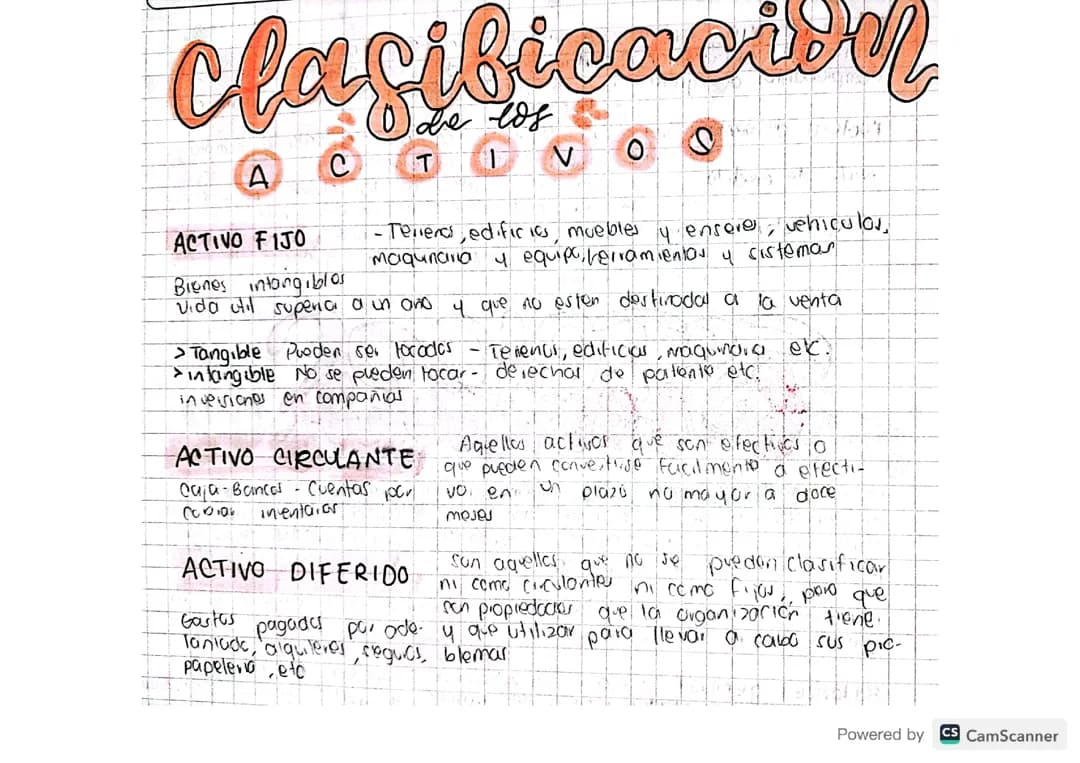 Clasificación
de los
ACTIVOS
ACTIVO FIJO
- Terrenos, edificios, muebles y enseres, vehiculos,
maquinaria y equipo, herramientas y sistemas
Bienes intangiblos
vida util superia a un ano y que no esten destinados a la venta
> Tangible Pueden ser tocados - Terrenos, edificios, maquinaria etc.
> intangible No se pueden tocar - derechos de patente etc.
inversiones en compañias
ACTIVO CIRCULANTE
Caja - Bancos - Cuentas por
cobrar inventarios
Aquellos activos que son efectivos o
que pueden convertirse facilmente a efecti-
vo en un plazo no mayor a doce
meses
ACTIVO DIFERIDO
Gastos pagados por ade-
lantado, alquileres, seguros,
papeleria, etc
Son aquellos que no se pueden clasificar
ni como circulantes ni como fijos, pero que
son propiedades que la organización tiene
y que utilizar para llevar a cabo sus pro-
blemas
Powered by CS CamScanner